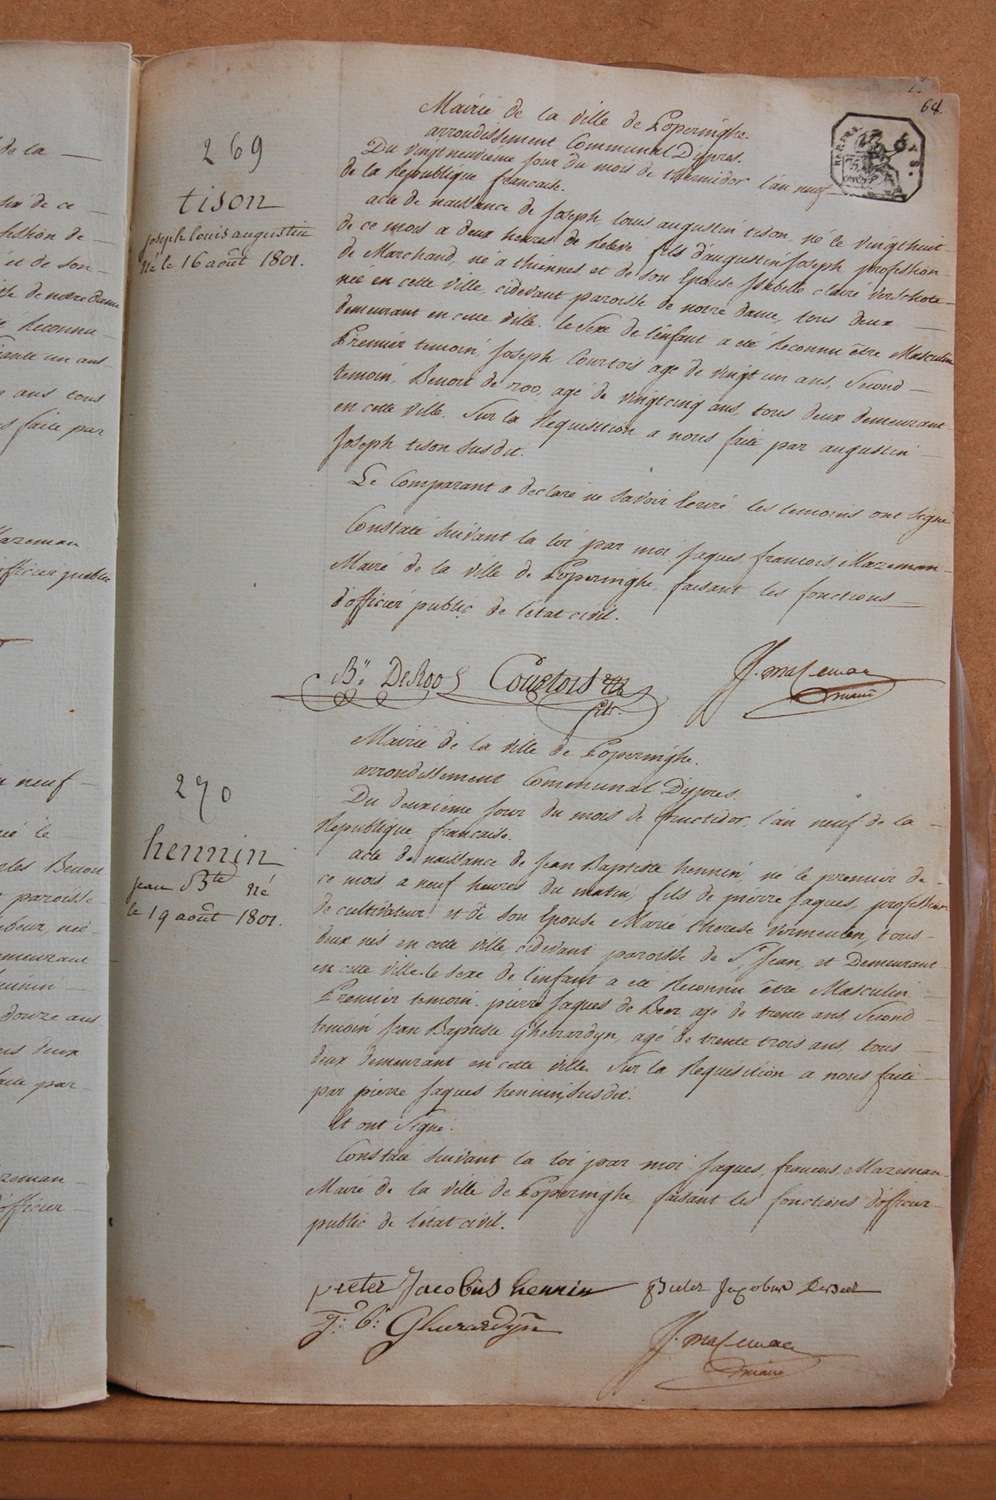 64
Mairie de la ville de Poperinghe
arrondissement Communal D'ypres.
Du vingtneuvieme jour du mois de thermidor l'an neuf
de la Republique francaise.
269
tison
joseph louis augustin
né le 16 août 1801.
acte de naissance de Joseph Louis augustin tison, né le vingthuit
de ce mois a deux heures de relevé fils d'augustin joseph profession
de Marchand, né a thiennes et de son Epouse Isabelle claire
née en cette ville, cidevant paroisse de notre dame, tous deux
demeurant en cette ville. le sexe de l'enfant a été reconnu être Masculin
Premier temoin, Joseph Courtois age de vingt un ans, Second
temoin, Benoit de roo, agé de vingtcinq ans, tous deux demeurant
en cette ville. Sur la Requisition a nous faite par augustin
Joseph tison susdit.
Le Comparant a declaré ne savoir les temoins ont signé
Constaté suivant la loi par moi jaques francois Mazeman
Maire de la ville de Poperinghe faisant les fonctions
d'officier public de l'état civil.
Bt. DeRoo Courtois
J. mazeman
maire
Mairie de la ville de Poperinghe.
arrondissement Communal D'ypres.
Du deuxieme jour du mois de fructidor l'an neuf de la
Republique francaise.
270
hennin
jean Bte né
le 19 août 1801.
acte de naissance de Jean Baptiste hennin né le premier de
ce mois a neuf heures du matin, fils de pierre jaques, profession
de cultivateur et de son Epouse Marie therese Vermeulen, tous
deux nés en cette ville, cidevant paroisse de St. Jean, et Demeurant
en cette ville. le sexe de l'enfant a été reconnu être Masculin
Premier temoin pierre jaques de Beer age de trente ans, Second
temoin Jean Baptiste Gherardyn, agé de trente trois ans, tous
deux demeurant en cette ville. Sur la Requisition a nous faite
par pierre jaques hennin, susdit.
Et ont signé.
Constaté suivant la loi par moi jaques, francois Mazeman
Maire de la ville de Poperinghe faisant les fonctions d'officier
public de l'état civil.
pieter Jacobus hennin Pieter Jacobus
J: b: Gherardyn
J. mazeman
maire